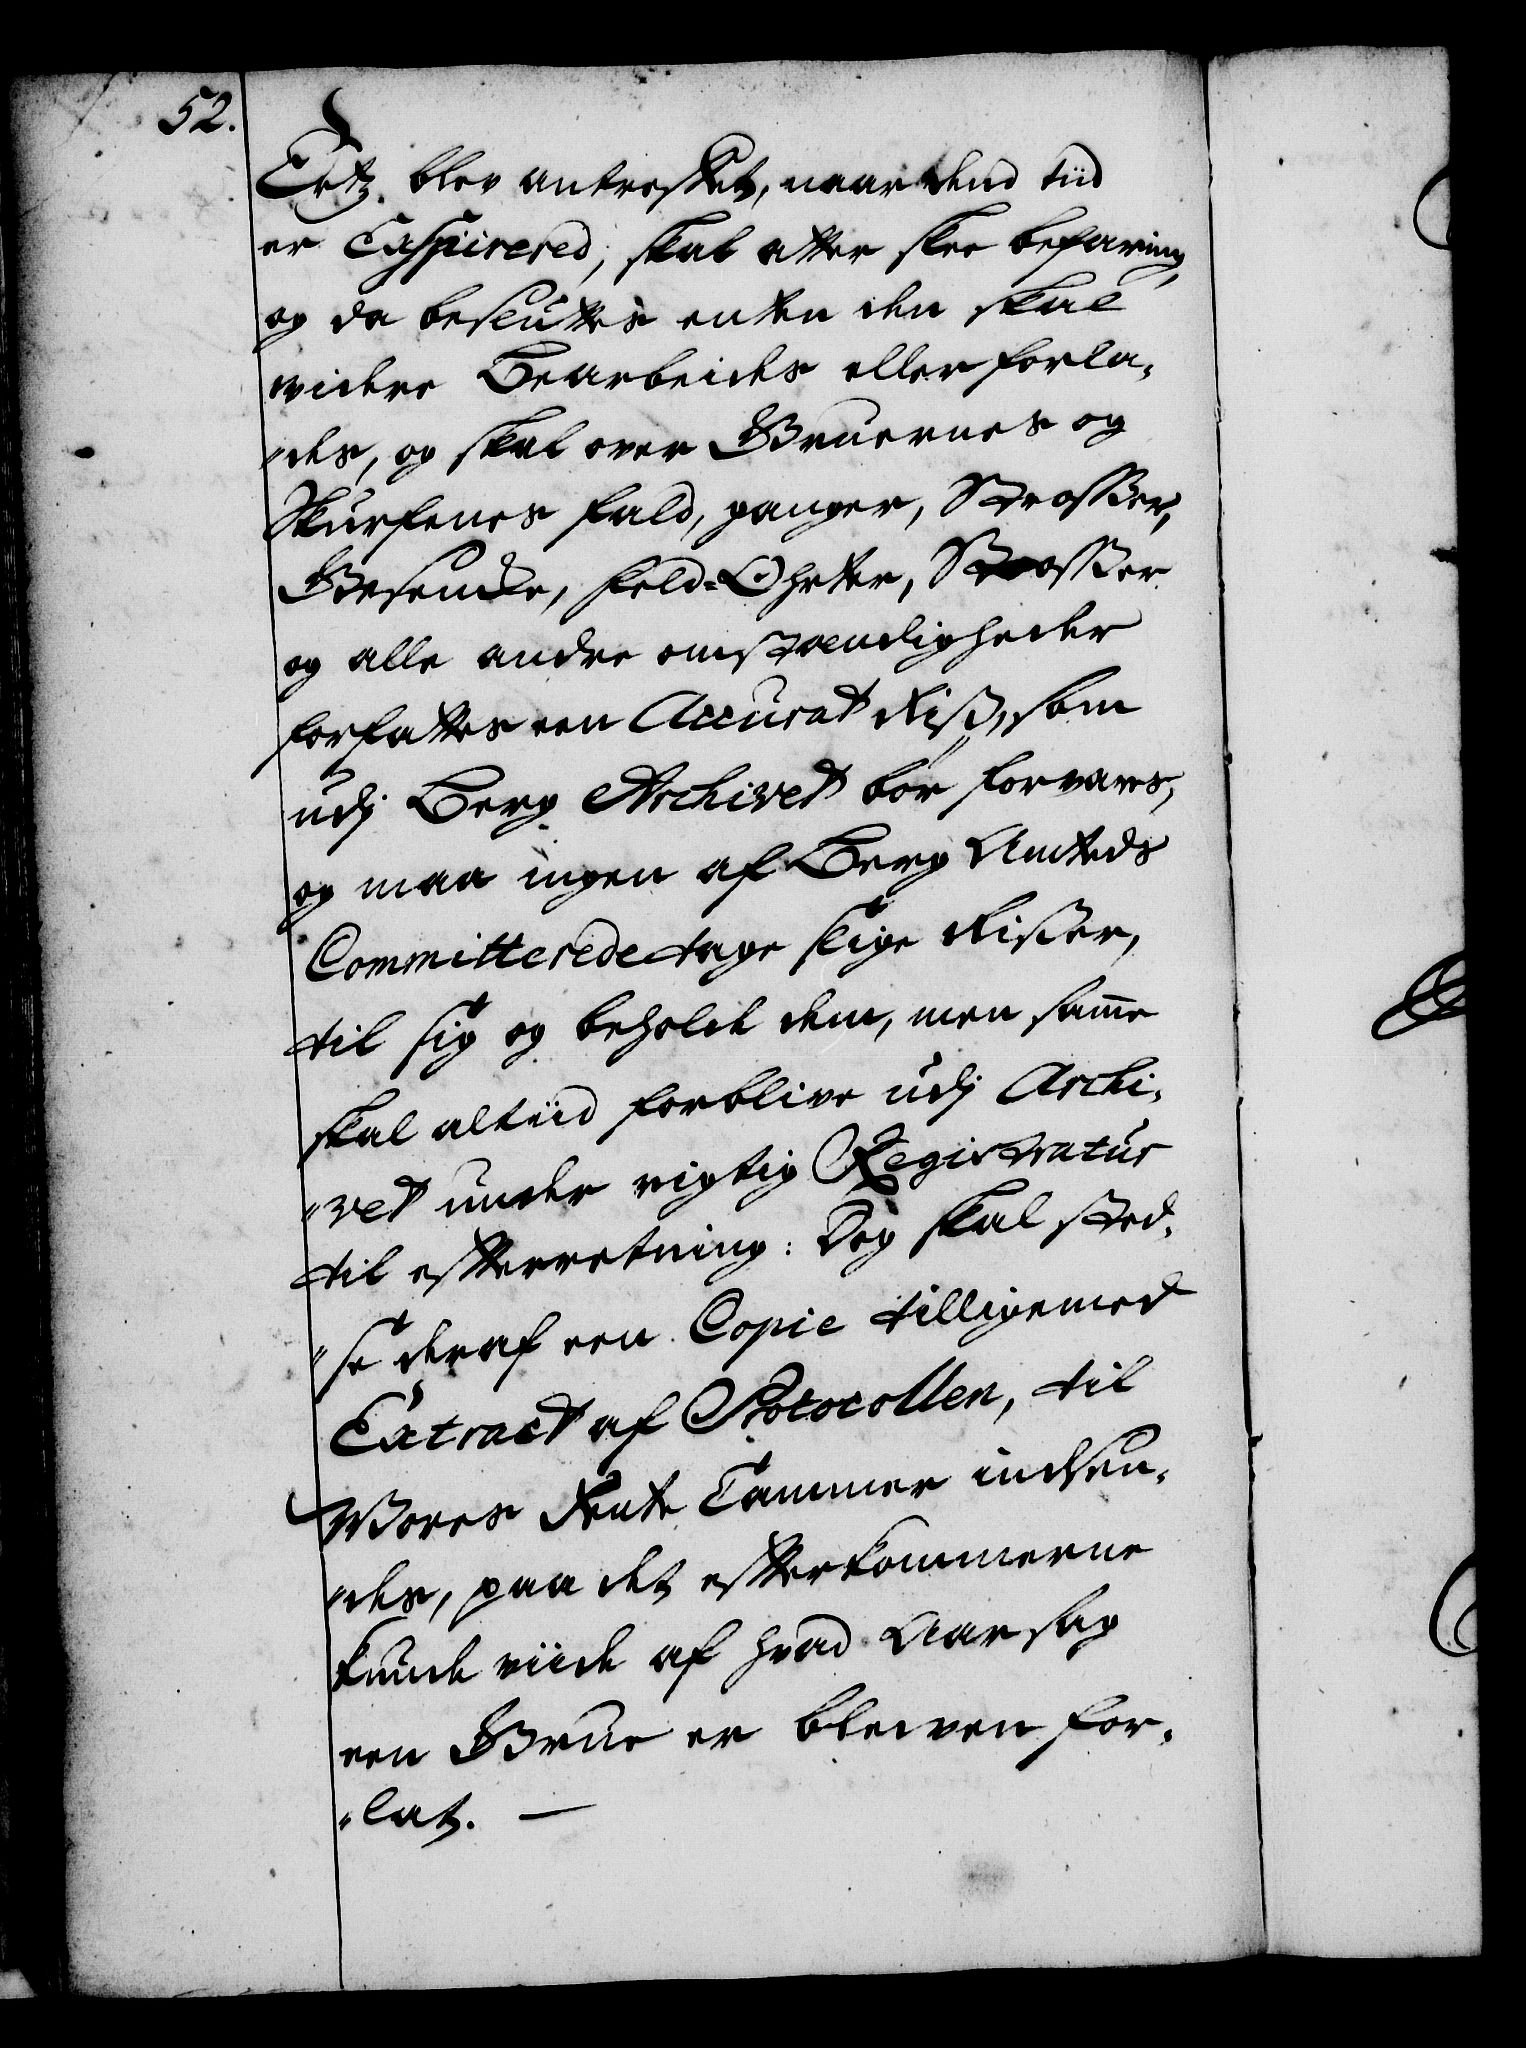 52.
Ertz blev antreffet, naar dend tiid
er Exspirered, skal atter skee befaring,
og da besluttes enten den skal
videre Bearbeides eller forla-
"des, og skal over Gruernes og
Skurfenes fald, ganger, Strosser,
Gesencke, feld-Ohrter, Strosser
og alle andre omstændigheder
forfattes een Accurat Riss, som
udj Berg Archivet bør forvares,
og maa ingen af Berg Amteds
Committerede tage slige Risser,
til sig og beholde dem, men samme
skal altiid forblive udj Archi-
"vet under rigtig Registratur
til efterretning: Dog skal sted-
"se deraf een Copie tilligemed
Extract af Protocollen, til
Vores Rente Cammer indsen-
"des, paa det efterkommerne
kunde viide af hvad Aarsag
een Grue er bleiven for-
"lat. —